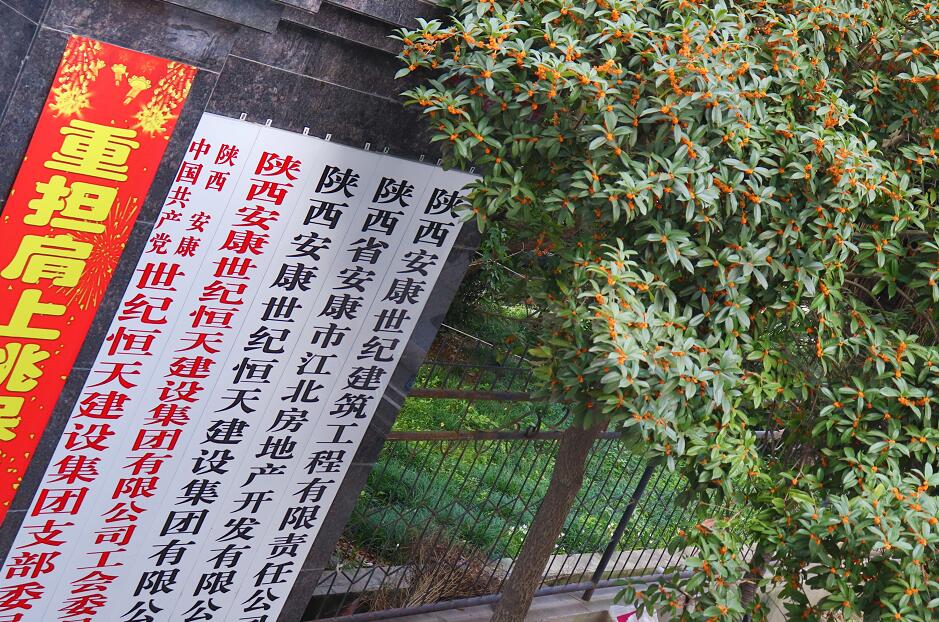 重担肩上挑
中国共产党
陕西安康
世纪恒天建设集团支部委
陕西安康世纪恒天建设集团有限公司工会委
陕西安康世纪恒天建设集团有限公
陕西省安康市江北房地产开发有限公
陕西安康世纪建筑工程有限责任公